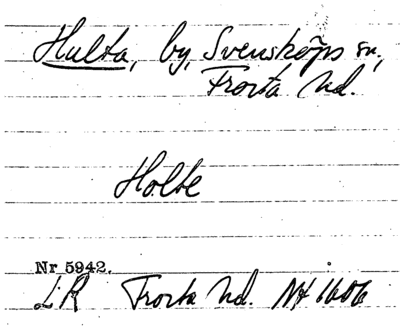 Hulta, by, Svensköps sn,
Frosta hd.
Holte
Nr 5942.
LR Frosta hd. NH 1606